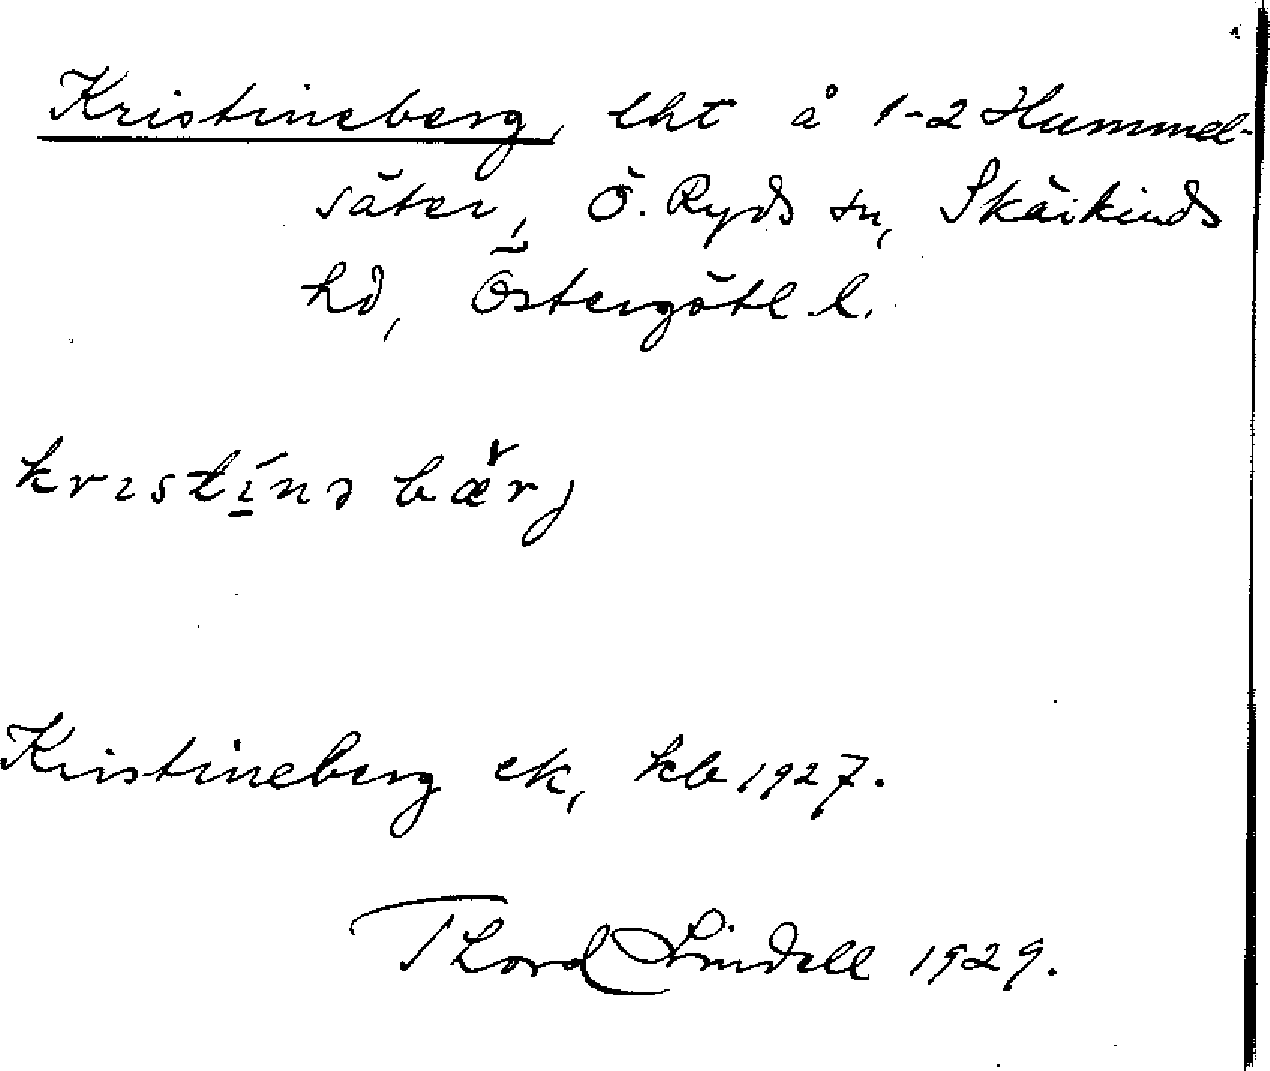 Kristineberg, lht å 1-2 Hummel-
säter, Ö. Ryds sn, Skärkinds
hd, Östergötl. l.
krıstínə bær̆j
Kristineberg ek, kb 1927.
Thord Lindell 1929.